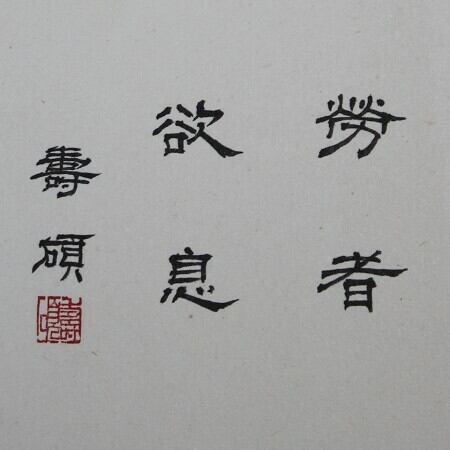 勞者
欲息
壽碩